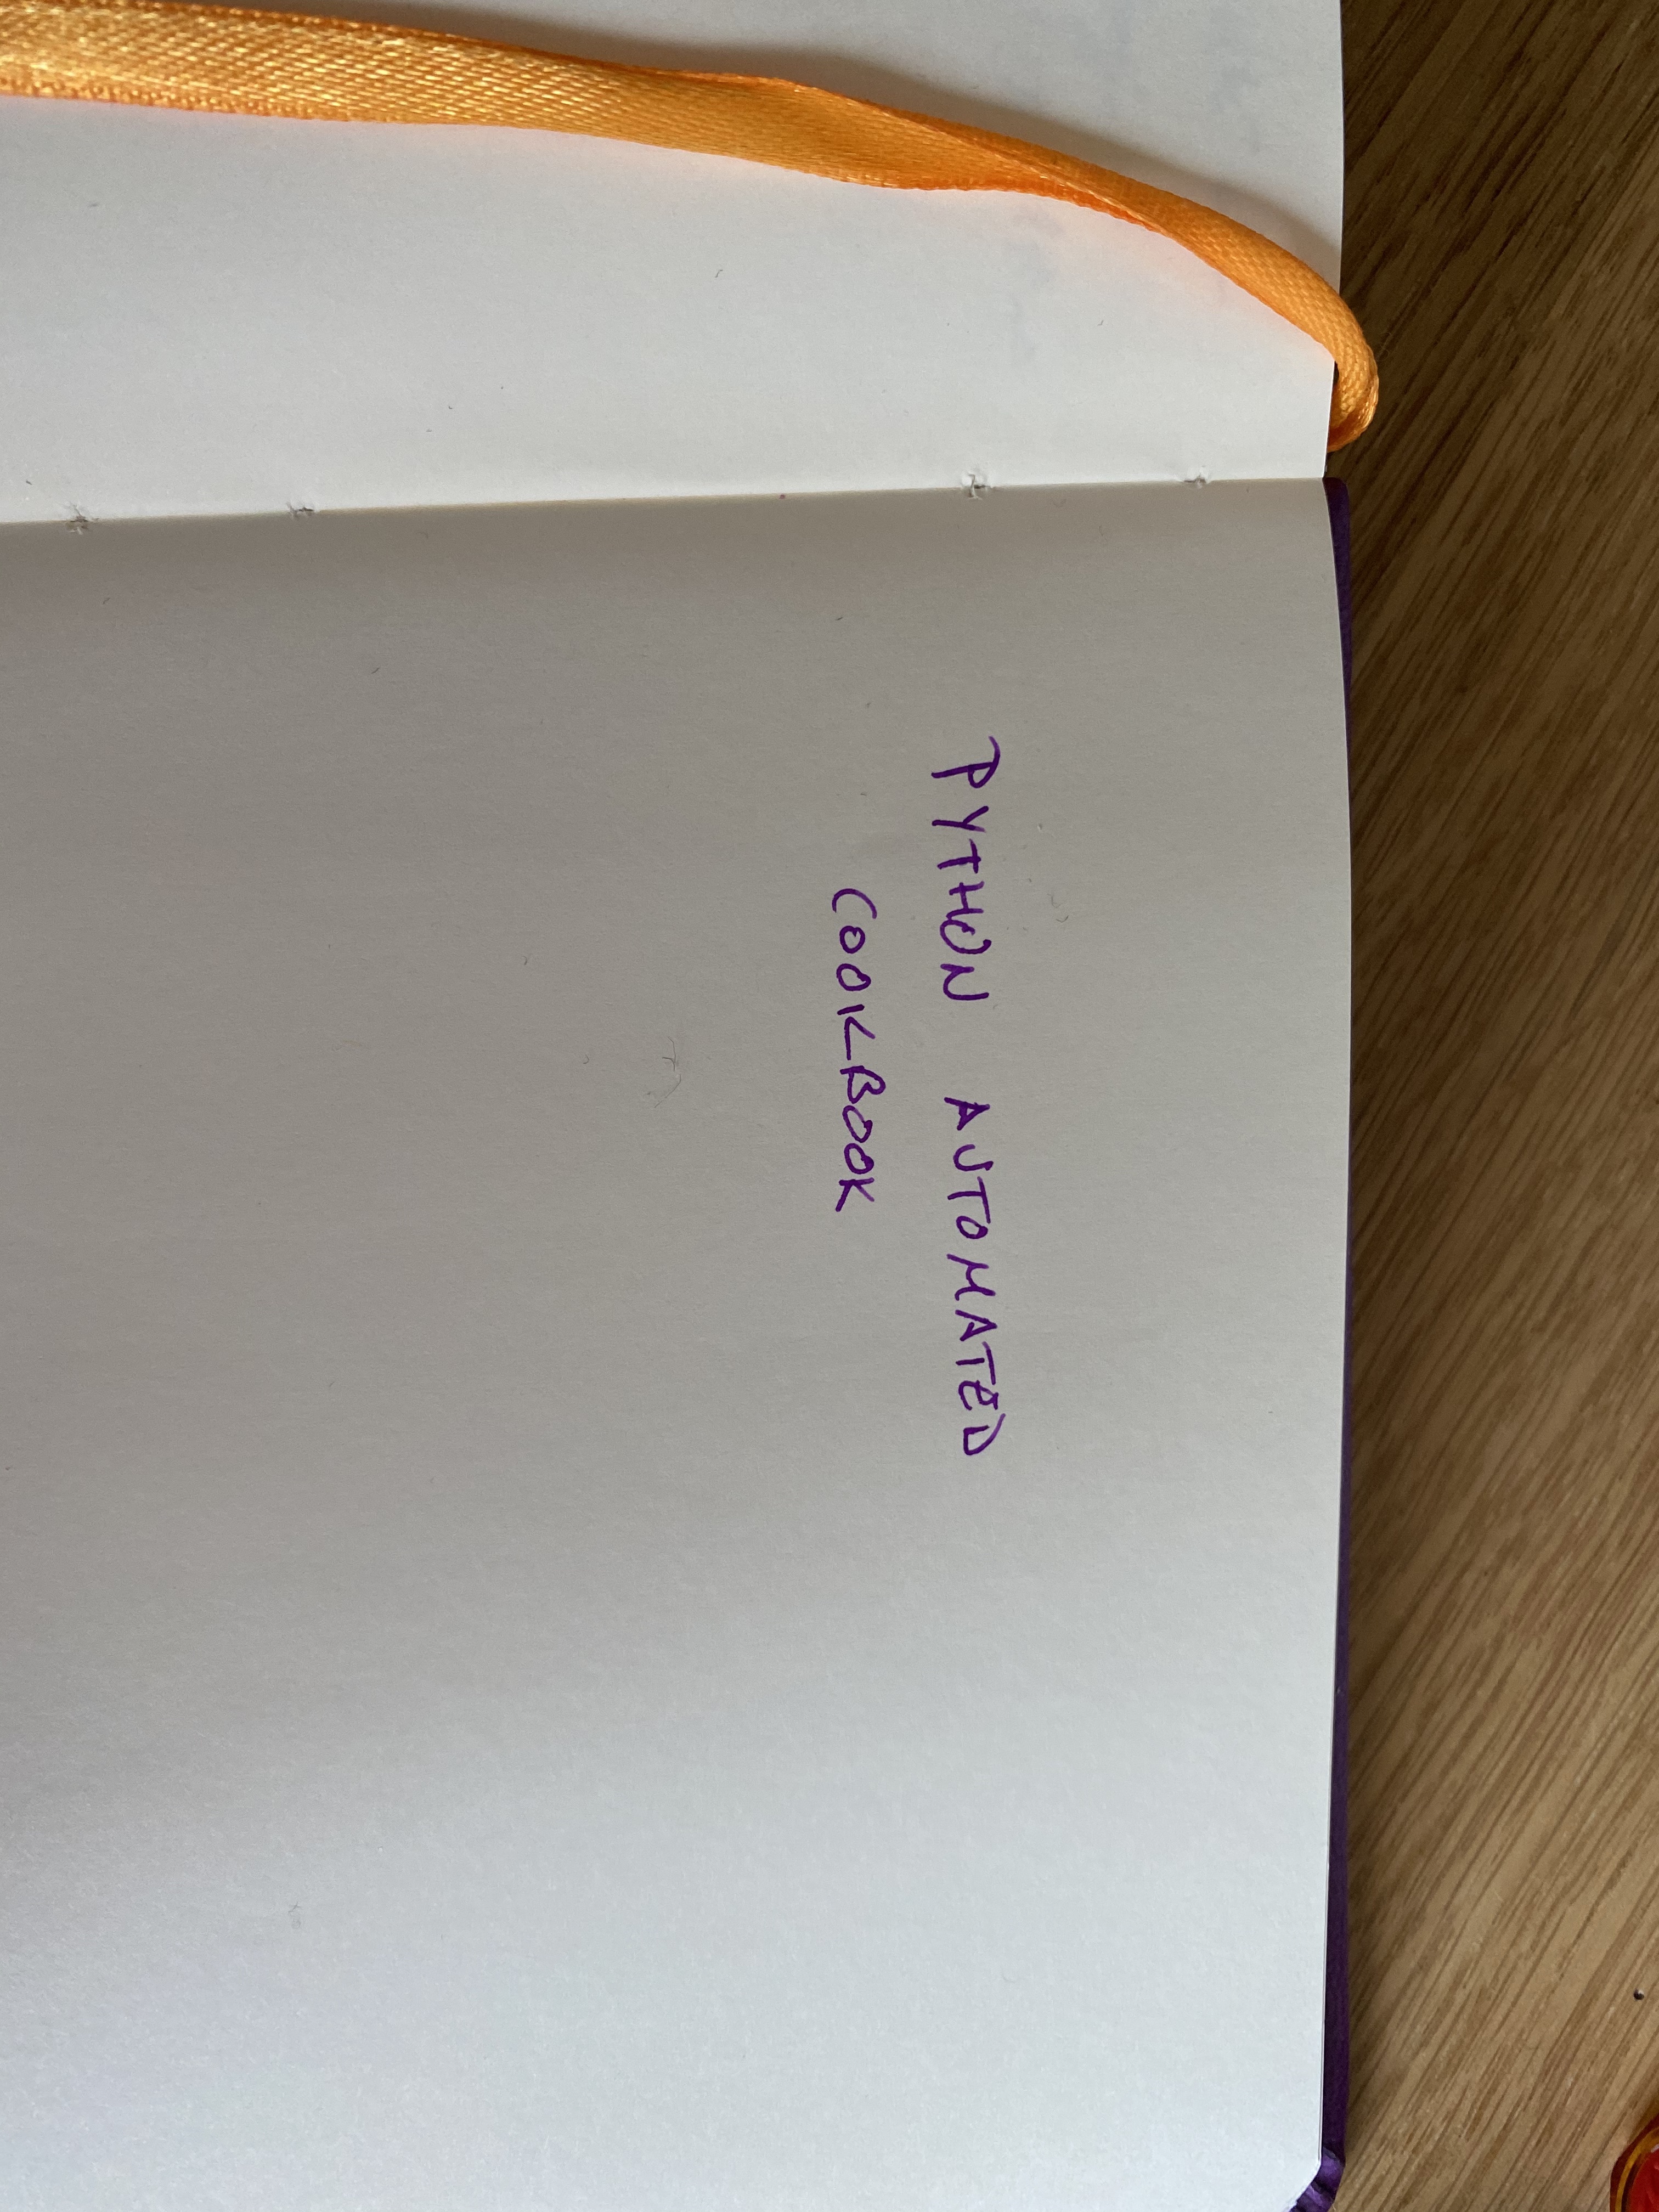 PYTHON AUTOMATED
COOKBOOK